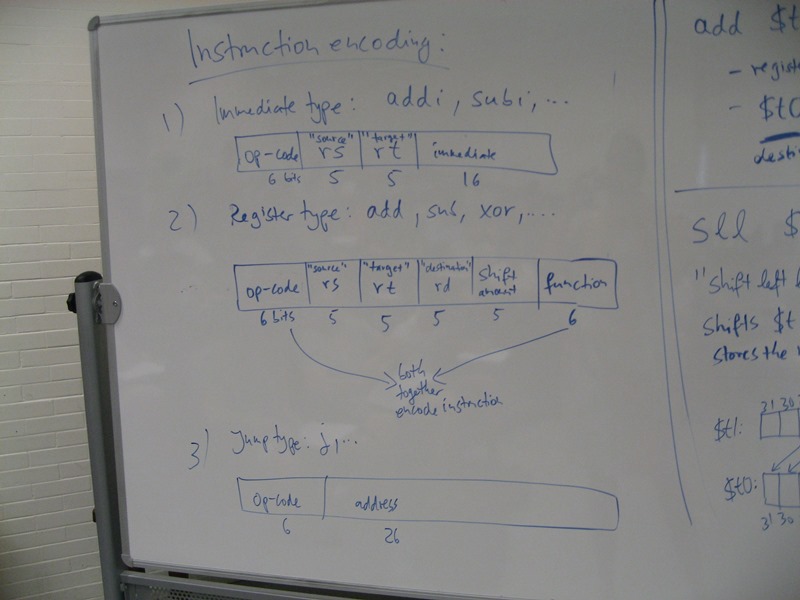 Instruction encoding:
1) Immediate type: addi, subi, ...
op-code "source" rs "target" rt immediate
6 bits 5 5 16
2) Register type: add, sub, xor, ...
op-code "source" rs "target" rt "destination" rd shift amount function
6 bits 5 5 5 5 6
both
together
encode instruction
3) Jump type: j, ...
op-code address
6 26
add $t
- regis
- $t0
desti
sll $
"shift left l
shifts $t
stores the
31 30
$t1:
$t0:
31 30